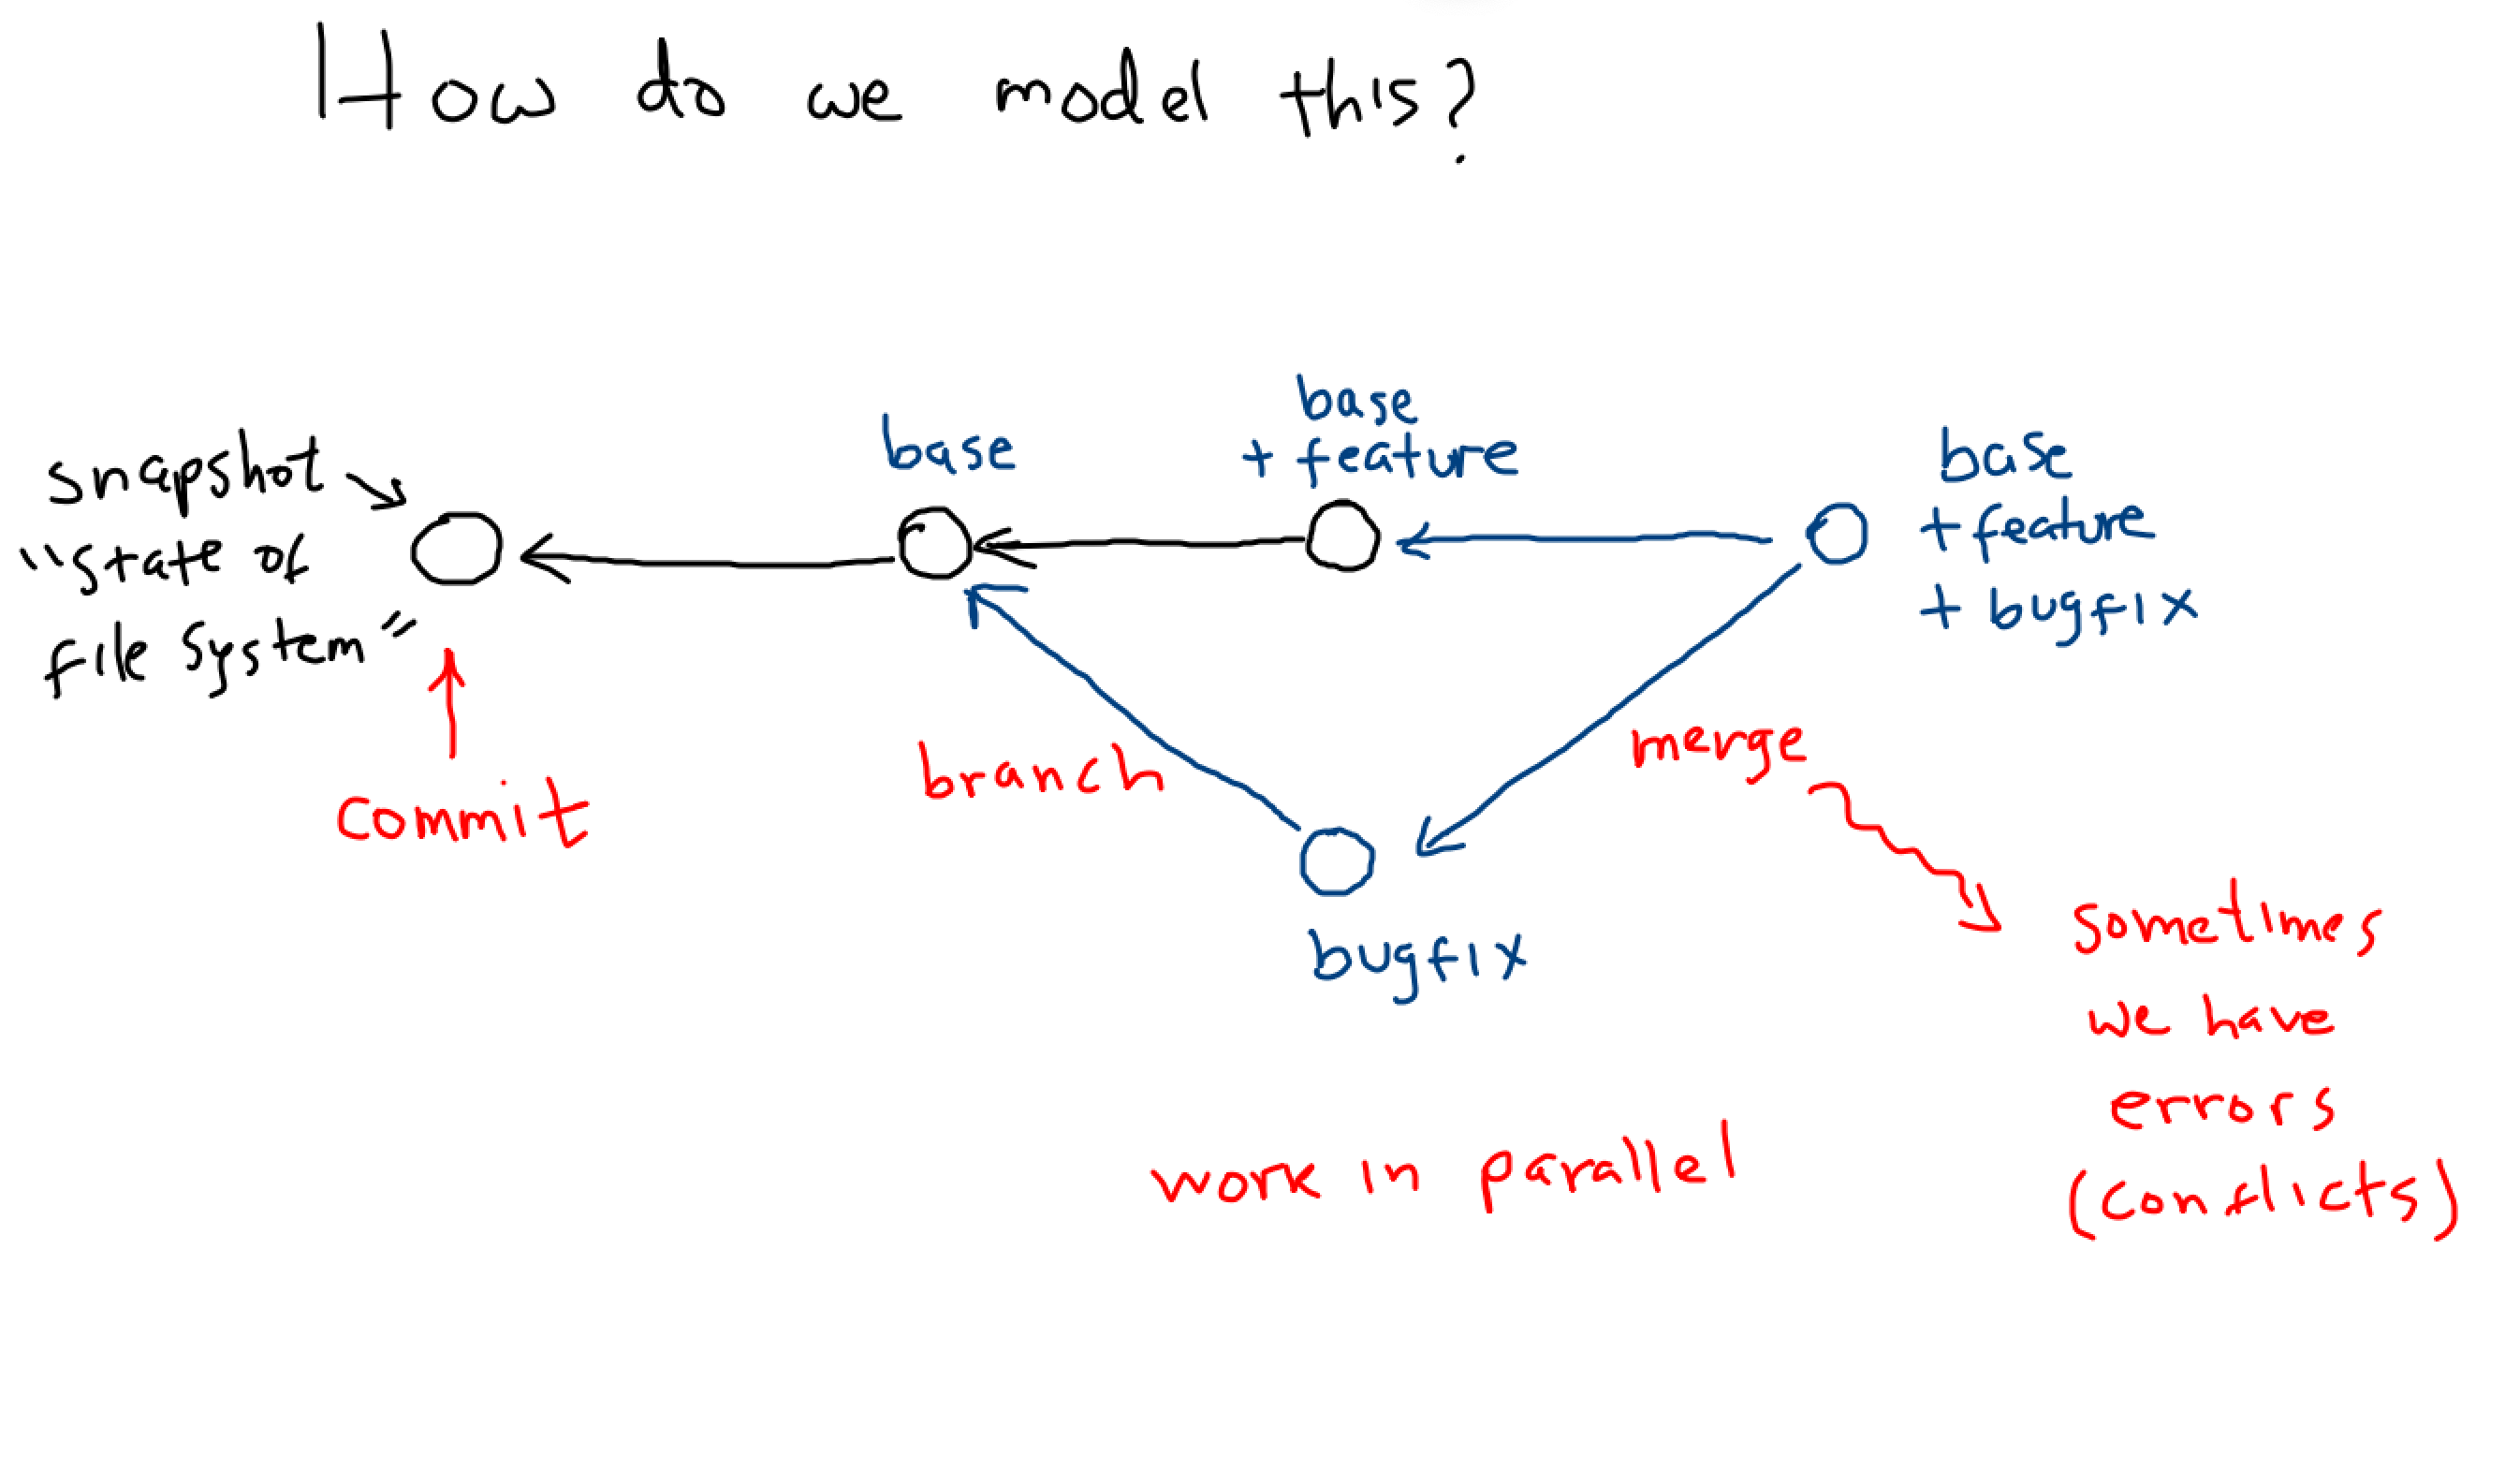 How do we model this?
snapshot
"state of
file system"
commit
base
base
+ feature
base
+ feature
+ bugfix
branch
merge
bugfix
sometimes
we have
errors
(conflicts)
work in parallel